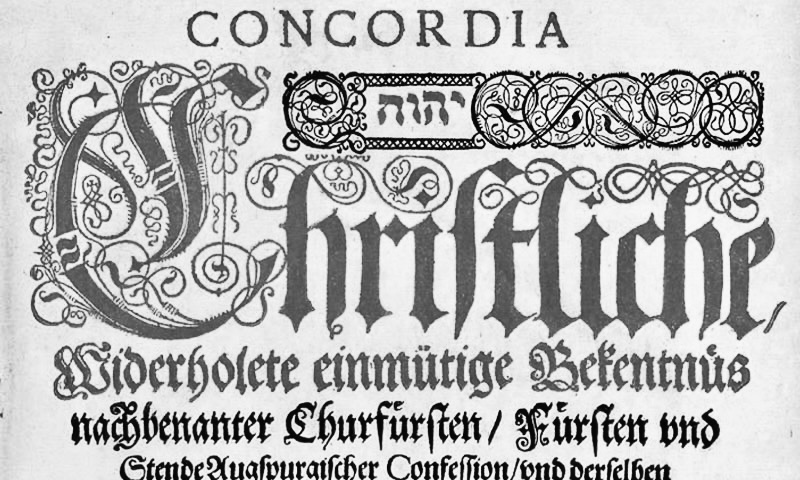 CONCORDIA
יהוה
Chriſtliche,
Widerholete einmütige Bekentnüs
nachbenanter Churfürſten / Fürſten vnd
Stende Augſpurgiſcher Confeſſion / vnd derſelben